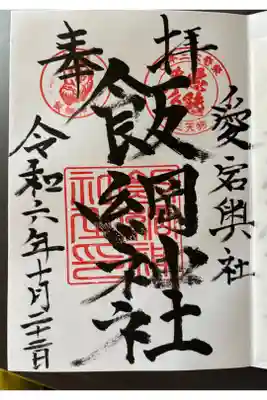 奉拝
愛宕奥社
飯綱神社
令和六年十月二十二日